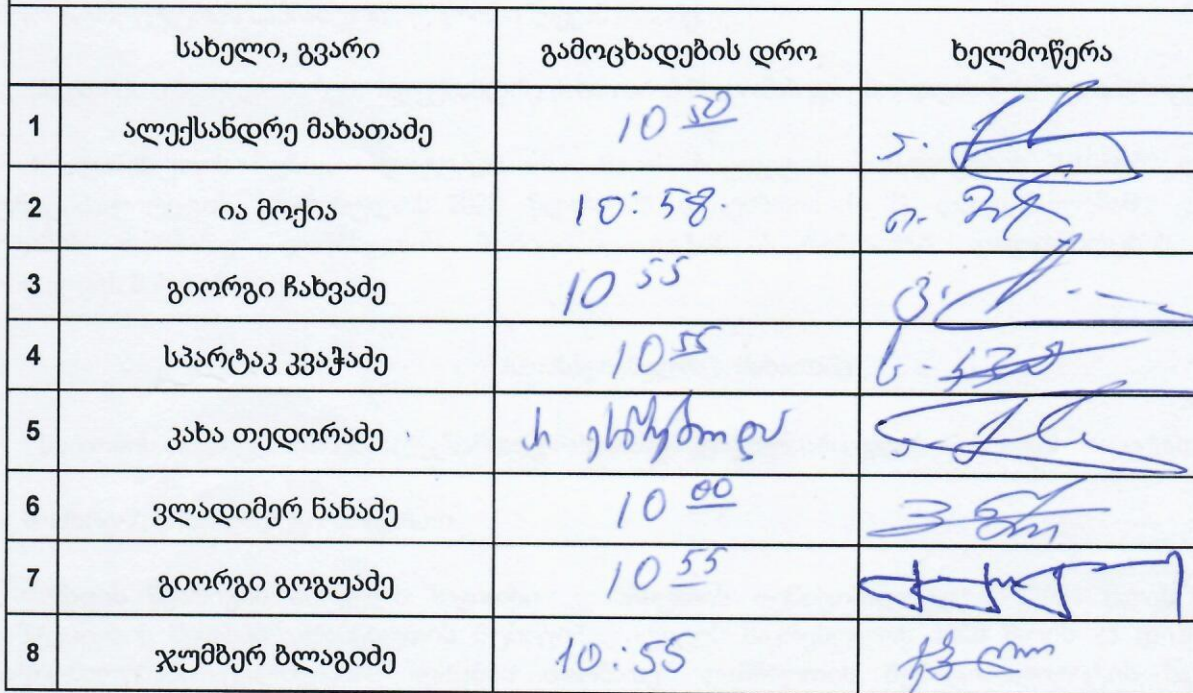 სახელი, გვარი გამოცხადების დრო ხელმოწერა
1 ალექსანდრე მახათაძე 10 50
2 ია მოქია 10:58
3 გიორგი ჩახვაძე 10 55
4 სპარტაკ კვაჭაძე 10 55
5 კახა თედორაძე
6 ვლადიმერ ნანაძე 10 00
7 გიორგი გოგუაძე 10 55
8 ჯუმბერ ბლაგიძე 10:55